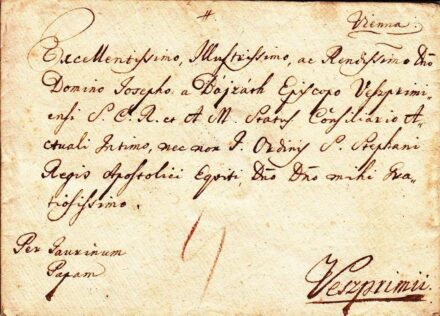 Vienna.
Excellentissimo, Illustrissimo, ac Rendissimo Dño
Domino Josepho a Bajzáth Episcopo Veszprimi-
ensi S. C. R. et A. M. Status Consiliario A-
ctuali Intimo, nec non I. Ordinis S. Stephani
Regis Apostolici Equiti, Dño Dño mihi Gra-
tiosissimo.
Per Jaurinum
Papam
Veszprimii.